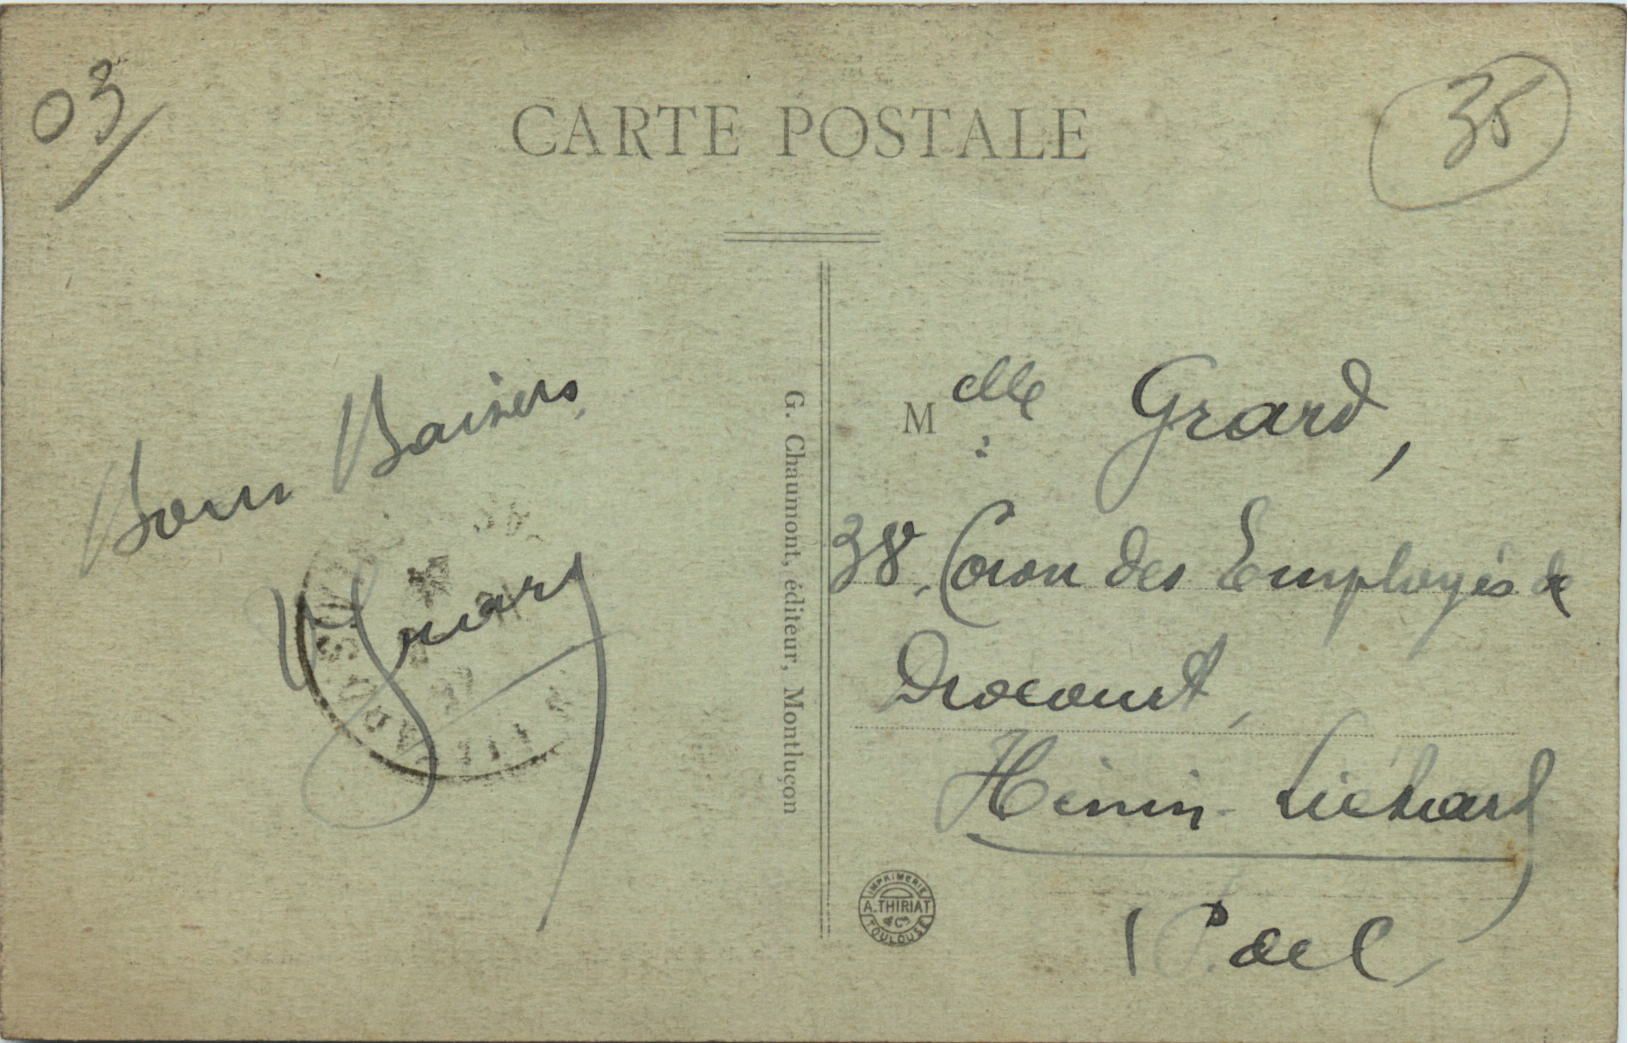 03
CARTE POSTALE
35
Bons Baisers
G. Chaumont, éditeur, Montluçon
Melle Grard,
38, Coron des Employés de
Drocourt,
Hénin-Liétard
(P. de C
IMPRIMERIE
A. THIRIAT
& Cie
TOULOUSE